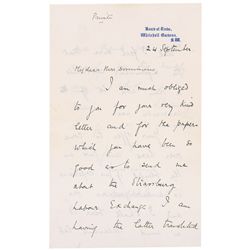 Private
Board of Trade,
Whitehall Gardens,
S.W.
24 September
My dear Miss
I am much obliged
to you for your very kind
letter and for the papers
which you have been so
good as to send me
about the Strassburg
Labour Exchange. I am
having the latter translated